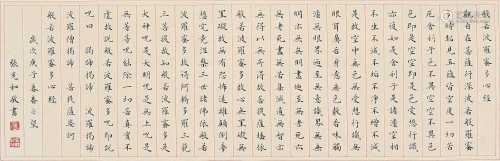 般若波羅蜜多心經
觀自在菩薩行深般若波羅蜜多
時照見五蘊皆空度一切苦
厄舍利子色不異空空不異色
色即是空空即是色受想行識
亦復如是舍利子是諸法空相
不生不滅不垢不淨不增不減
是故空中無色無受想行識無
眼耳鼻舌身意無色聲香味觸
法無眼界乃至無意識界無無
明亦無無明盡乃至無老死亦
無老死盡無苦集滅道無智亦
無得以無所得故菩提薩埵依
般若波羅蜜多故心無罣礙無
罣礙故無有恐怖遠離顛倒夢
想究竟涅槃三世諸佛依般若
波羅蜜多故得阿耨多羅三藐
三菩提故知般若波羅蜜多是
大神呪是大明呪是無上呪是
無等等呪能除一切苦真實不
虛故說般若波羅蜜多呪即說
呪曰 揭諦揭諦 波羅揭諦
波羅僧揭諦 菩提薩婆訶
般若波羅蜜多心經
歲次庚子春暮
張充和敬書